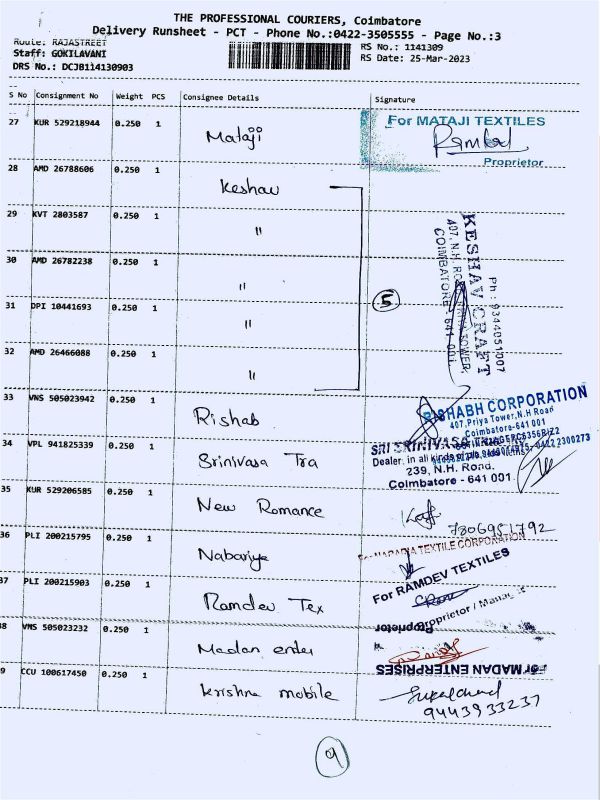 THE PROFESSIONAL COURIERS, Coimbatore
Delivery Runsheet - PCT - Phone No.:0422-3505555 - Page No.:3
Route: RAJASTREET
Staff: GOKILAVANI
DRS No.: DCJB114130903
RS No.: 1141309
RS Date: 25-Mar-2023
S No Consignment No Weight PCS Consignee Details Signature
27 KUR 529218944 0.250 1 Mataji
For MATAJI TEXTILES
Proprietor
28 AMD 26788606 0.250 1 Keshav
29 KVT 2803587 0.250 1 "
30 AMD 26782238 0.250 1 "
31 DPI 10441693 0.250 1 "
32 AMD 26466088 0.250 1 "
5
KESHAV CRAFT
407, N.H. ROAD, PRIYA TOWER,
COIMBATORE - 641 001
Ph : 9344051007
33 VNS 505023942 0.250 1 Rishab
RISHABH CORPORATION
407, Priya Tower, N.H Road
Coimbatore-641 001
34 VPL 941825339 0.250 1 Srinivasa Tra
SRI SRINIVASA
Dealer, in all kinds of
239, N.H. Road.
Coimbatore - 641 001.
35 KUR 529206585 0.250 1 New Romance
7806951792
36 PLI 200215795 0.250 1 Nabariya
TEXTILE CORPORATION
37 PLI 200215903 0.250 1 Ramdev Tex
For RAMDEV TEXTILES
Proprietor / Manager
38 VNS 505023232 0.250 1 Madan enter
Proprietor
For MADAN ENTERPRISES
9 CCU 100617450 0.250 1 Krishna mobile
9443933237
9